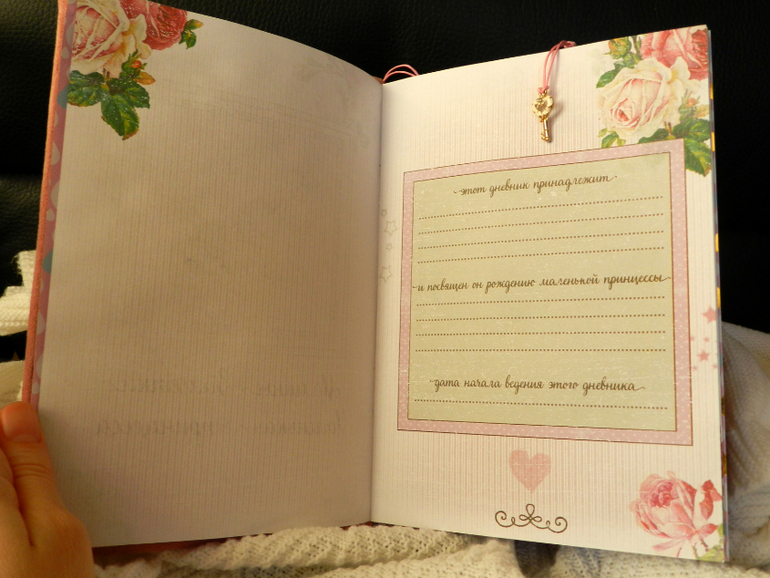 этот дневник принадлежит
и посвящен он рождению маленькой принцессы
дата начала ведения этого дневника